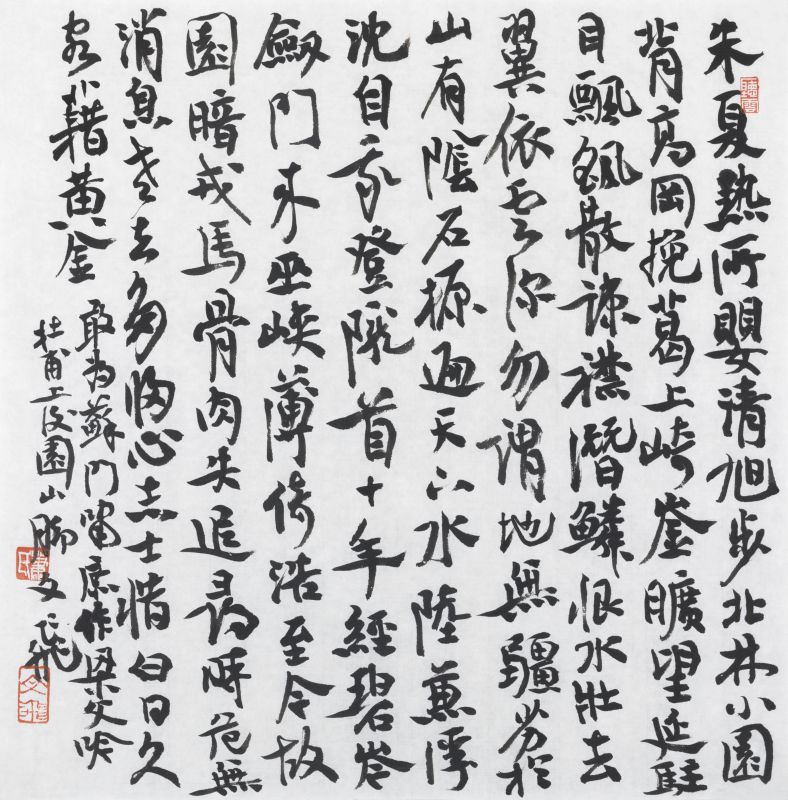 朱夏熱所嬰清旭步北林小園
背高岡挽葛上崎崟曠望延駐
目飄飖散疎襟潛鱗恨水壯去
翼依云深勿謂地無疆劣於
山有陰石榞遍天下水陸兼浮
沈自我登隴首十年經碧岑
劒門來巫峽薄倚浩至今故
園暗戎馬骨肉失追尋時危無
消息老去多歸心志士惜白日久
客藉黃金
敢為蘇門嘯庶作梁父吟
杜甫上後園山腳 文飛